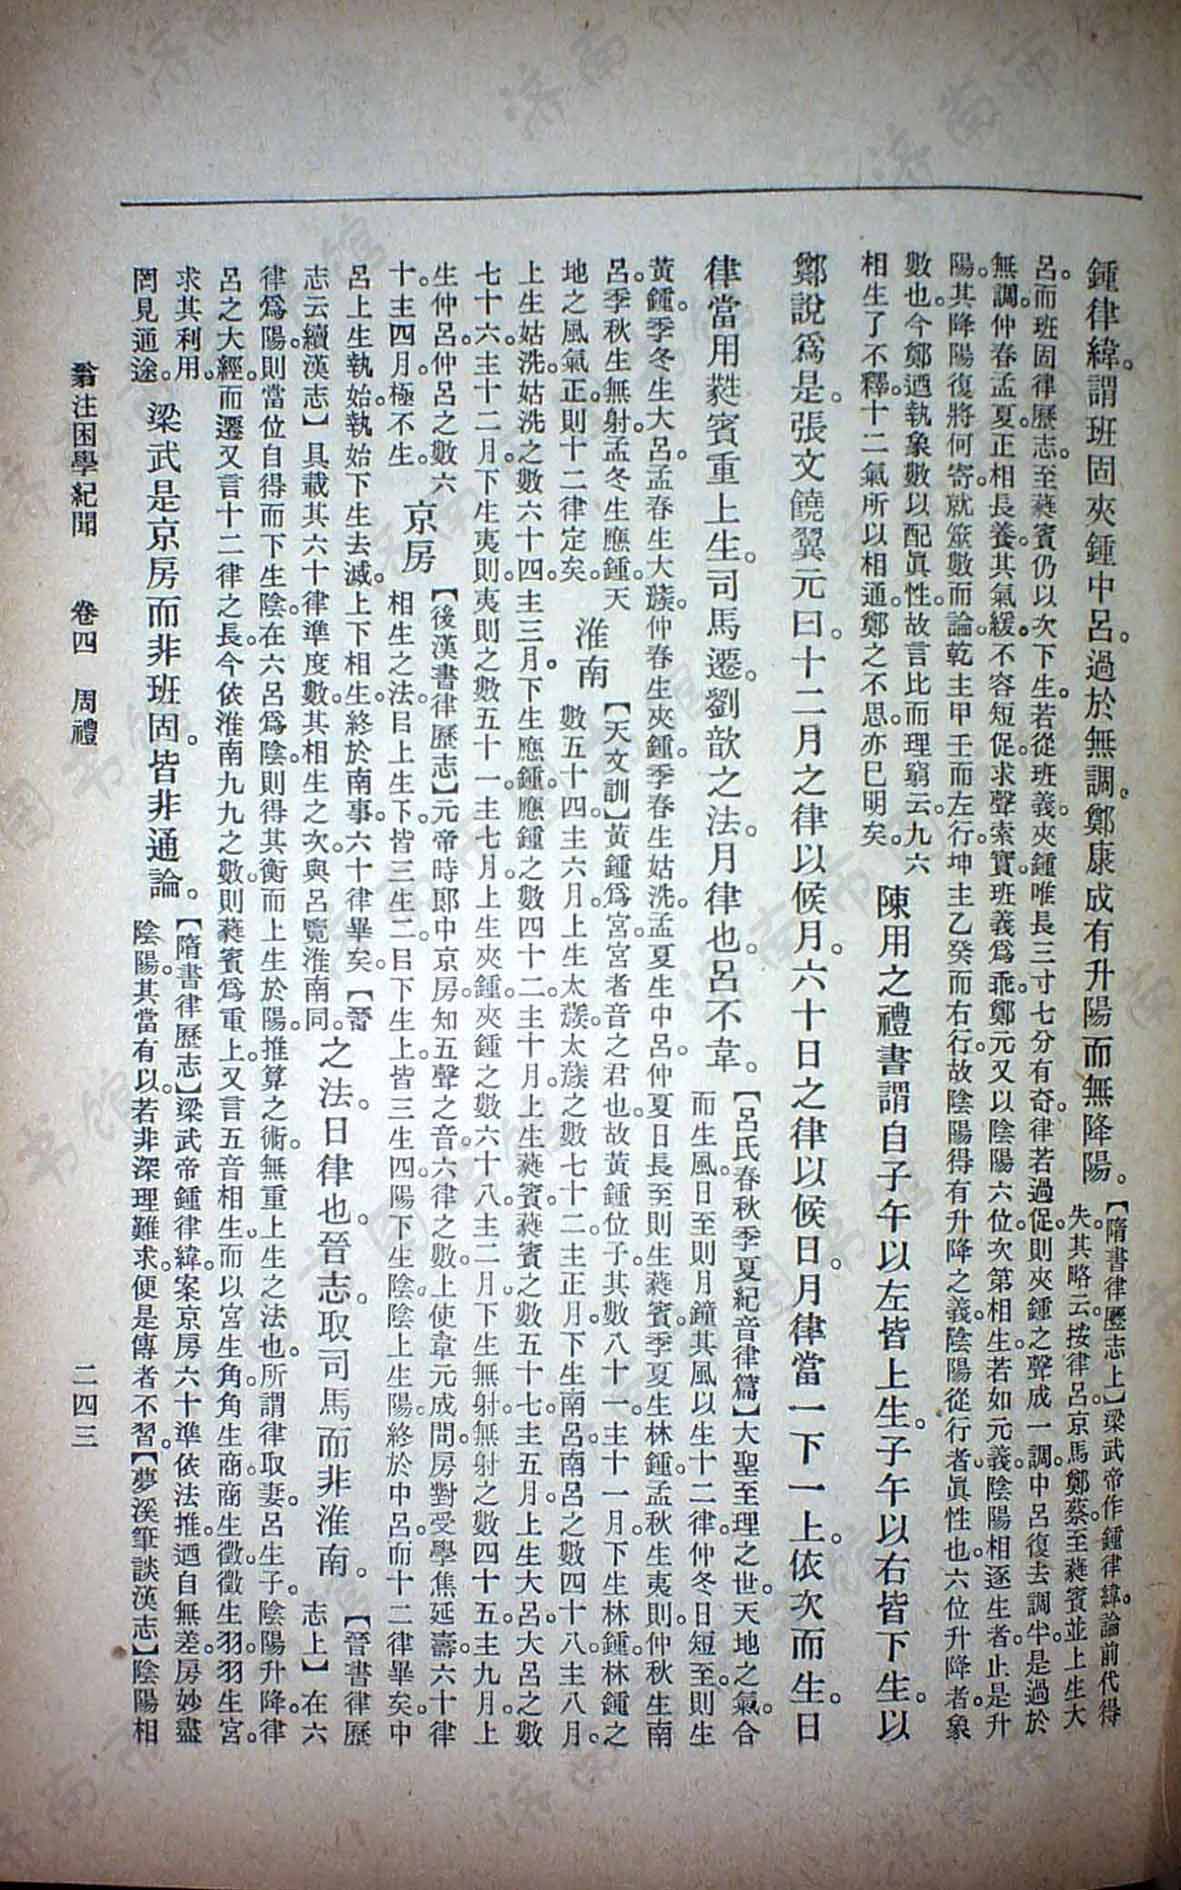 鍾律緯。謂班固夾鍾中呂。過於無調。鄭康成有升陽而無降陽。
【隋書律歷志上】梁武帝作鍾律緯。論前代得
失。其略云。按律呂。京馬鄭蔡。至蕤賓並上生大
呂。而班固律歷志。至蕤賓仍以次下生。若從班義。夾鍾唯長三寸七分有奇。律若過促。則夾鍾之聲成一調。中呂復去調半。是過於
無調。仲春孟夏正相長養。其氣緩。不容短促。求聲索實。班義爲乖。鄭元又以陰陽六位次第相生。若如元義。陰陽相逐生者。止是升
陽。其降陽復將何寄。就筮數而論。乾主甲壬而左行。坤主乙癸而右行。故陰陽得有升降之義。陰陽從行者。眞性也。六位升降者。象
數也。今鄭迺執象數以配眞性。故言比而理窮。云九六
相生了不釋。十二氣所以相通。鄭之不思。亦巳明矣。
陳用之禮書謂自子午以左皆上生。子午以右皆下生。以
鄭說爲是。張文饒翼元曰。十二月之律以候月。六十日之律以候日。月律當一下一上。依次而生。日
律當用蕤賓重上生。司馬遷。劉歆之法。月律也。呂不韋。
【呂氏春秋季夏紀音律篇】大聖至理之世。天地之氣。合
而生風。日至則月鐘其風以生十二律。仲冬日短至。則生
黃鍾。季冬生大呂。孟春生大蔟。仲春生夾鍾。季春生姑洗。孟夏生中呂。仲夏日長至。則生蕤賓。季夏生林鍾。孟秋生夷則。仲秋生南
呂。季秋生無射。孟冬生應鍾。天
地之風氣正。則十二律定矣。
淮南
【天文訓】黃鍾爲宮。宮者音之君也。故黃鍾位子。其數八十一。主十一月。下生林鍾。林鍾之
數五十四。主六月。上生太蔟。太蔟之數七十二。主正月。下生南呂。南呂之數四十八。主八月。
上生姑洗。姑洗之數六十四。主三月。下生應鍾。應鍾之數四十二。主十月。上生蕤賓。蕤賓之數五十七。主五月。上生大呂。大呂之數
七十六。主十二月。下生夷則。夷則之數五十一。主七月。上生夾鍾。夾鍾之數六十八。主二月。下生無射。無射之數四十五。主九月。上
生仲呂。仲呂之數六
十。主四月。極不生。
京房
【後漢書律歷志】元帝時。郎中京房知五聲之音。六律之數。上使韋元成問房。對受學焦延壽。六十律
相生之法。㠯上生下。皆三生二。㠯下生上。皆三生四。陽下生陰。陰上生陽。終於中呂。而十二律畢矣。中
呂上生執始。執始下生去滅。上下相生。終於南事。六十律畢矣。【晉
志云續漢志】具載其六十律準度數。其相生之次。與呂覽淮南同。
之法。日律也。晉志。取司馬而非淮南。
【晉書律歷
志上】在六
律爲陽。則當位自得而下生陰。在六呂爲陰。則得其衡而上生於陽。推算之術。無重上生之法也。所謂律取妻。呂生子。陰陽升降。律
呂之大經。而遷又言十二律之長。今依淮南九九之數。則蕤賓爲重上。又言五音相生。而以宮生角。角生商。商生徵。徵生羽。羽生宮。
求其利用。
罔見通途。
梁武是京房而非班固。皆非通論。
【隋書律歷志】梁武帝鍾律緯。案京房六十準。依法推迺自無差。房妙盡
陰陽。其當有以。若非深理難求。便是傳者不習。【夢溪筆談漢志】陰陽相
翁注困學紀聞　卷四　周禮　二四三